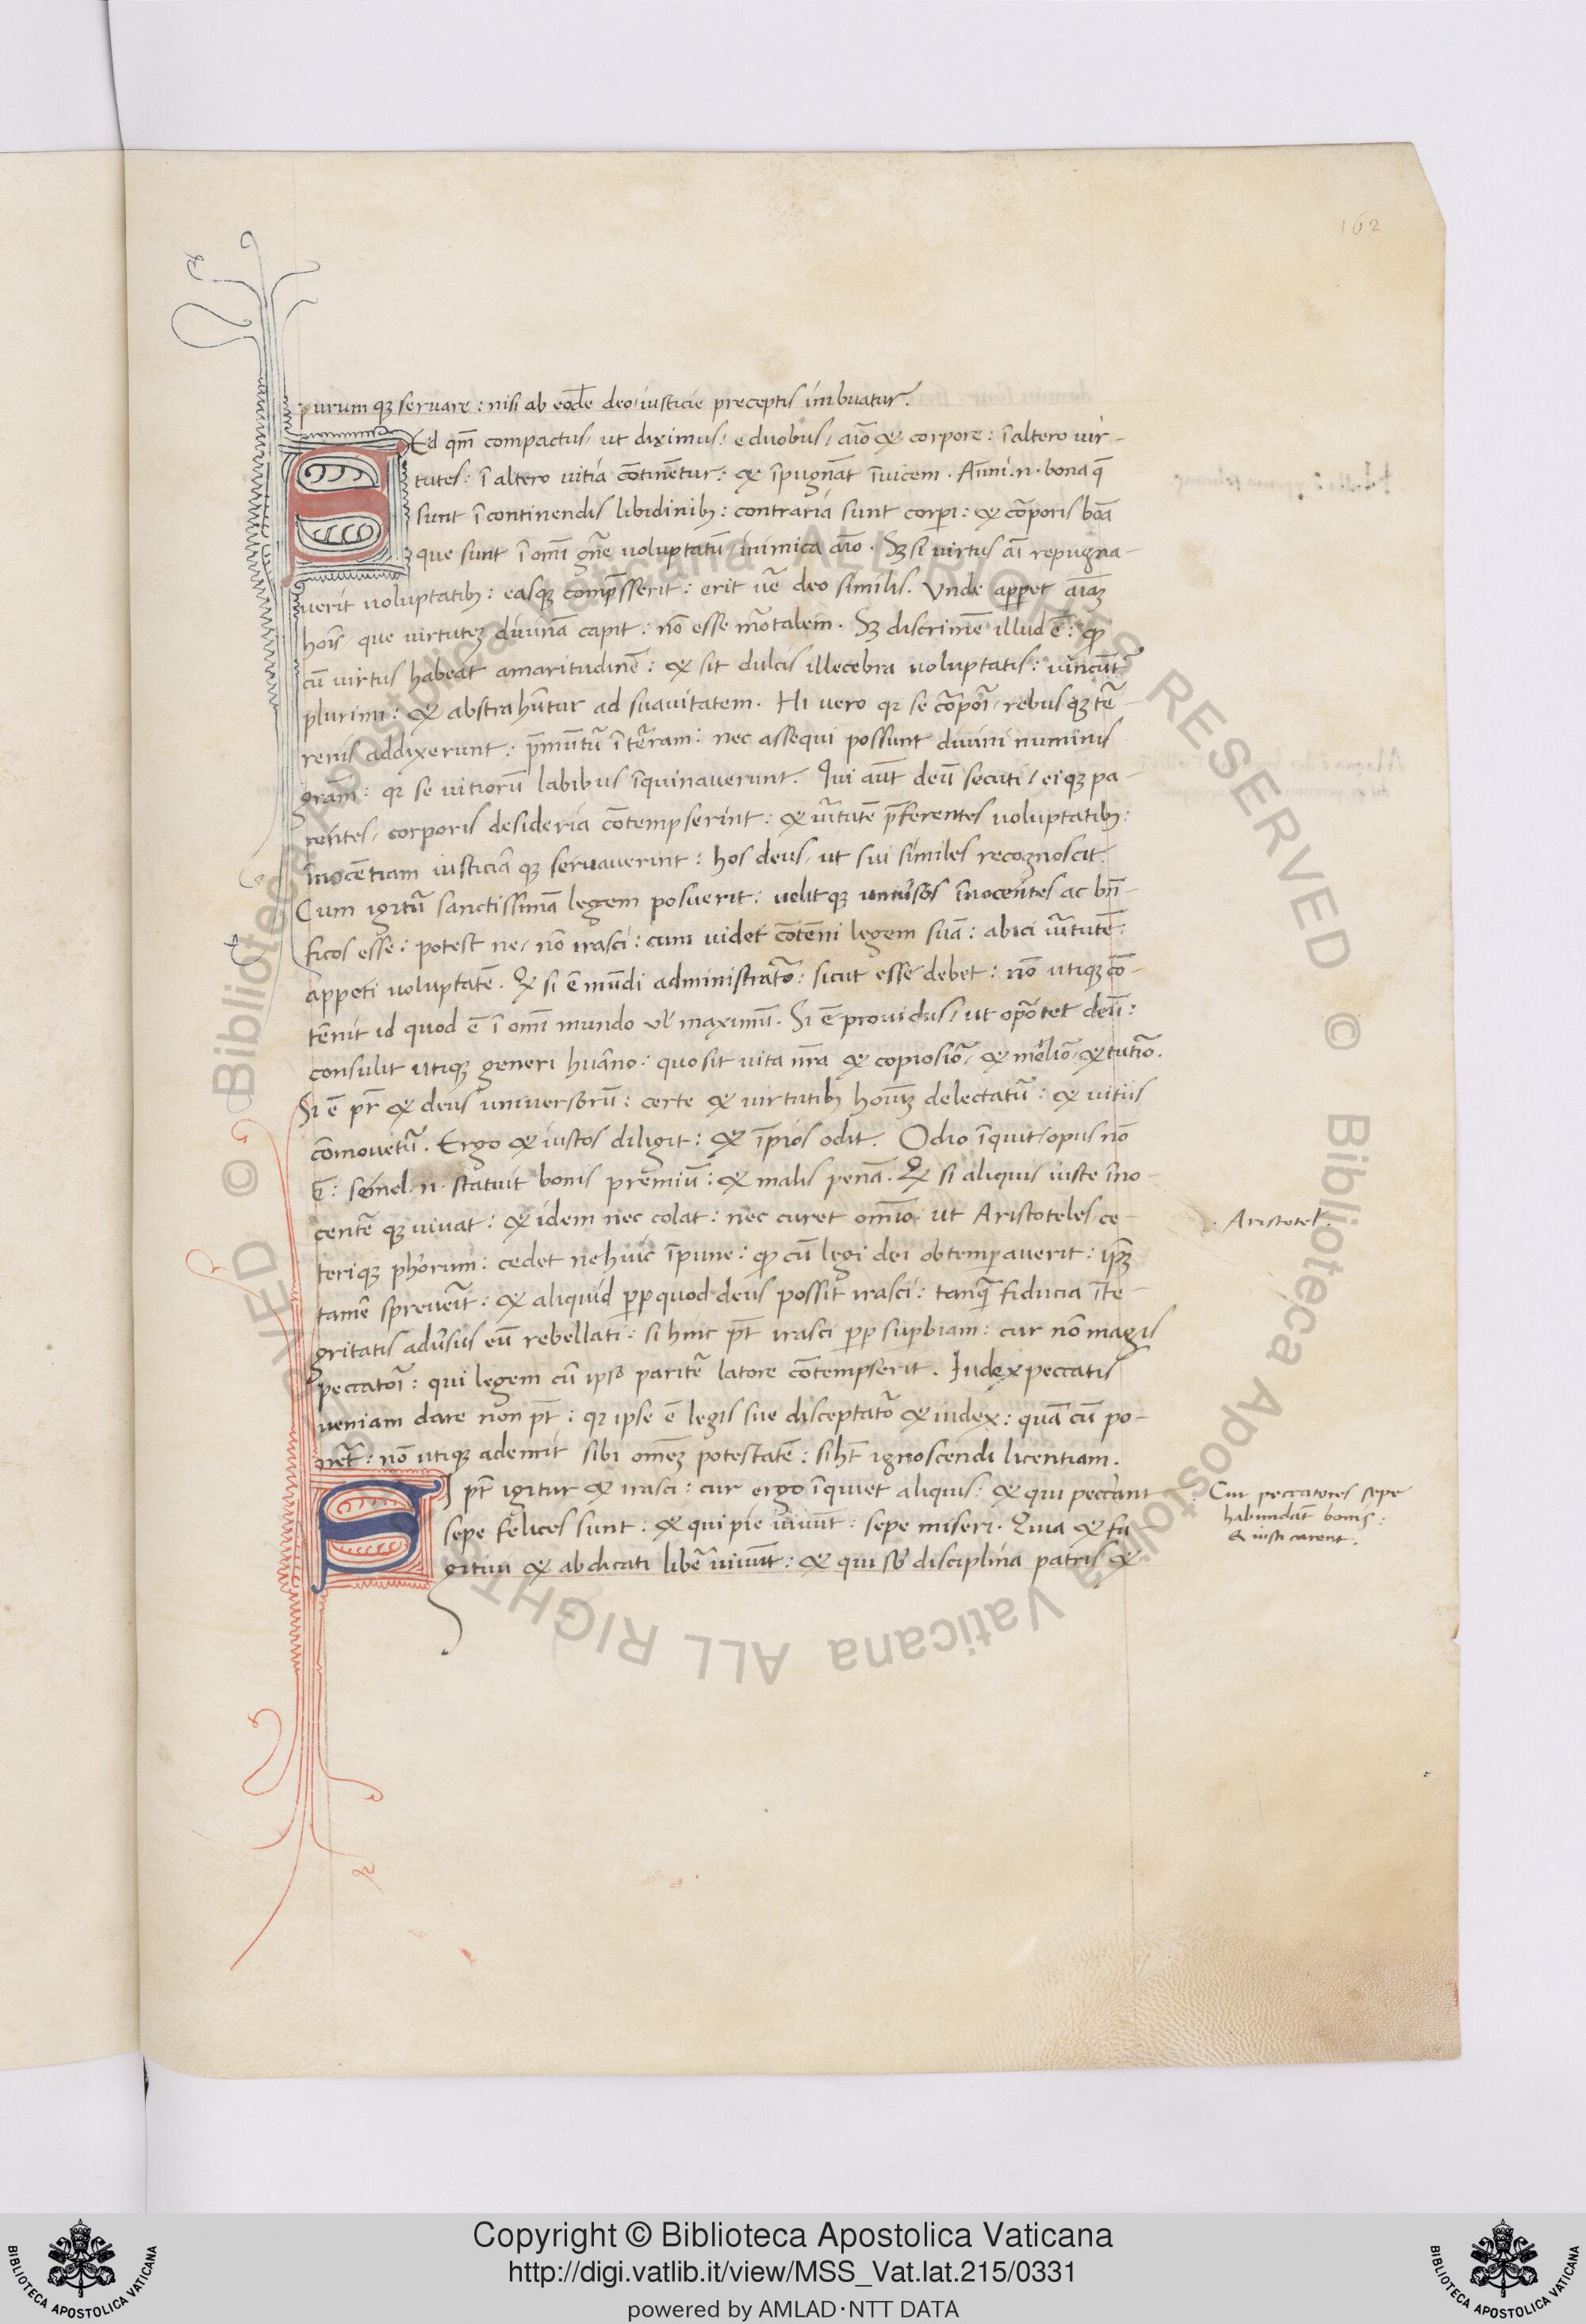 162
purum qꝫ seruare : nisi ab eodē deo / iusticie preceptis imbuatur.
SEd qm̄ compactus / ut diximus / e duobus / aīo & corpore : ī altero uir-
tutes : ī altero uitia cōtinētur : & īpugnāt īuicem . Animi .n. bona q̄
sunt ī continendis libidinibꝫ : contraria sunt corpī : & cōrporis boā
que sunt ī omī gn̄e uoluptatū / inimica aīo . Sꝫ si uirtus aī repugna-
uerit uoluptatibꝫ : easqꝫ comp̄sserit : erit uē deo similis . Vnde apꝑet aīaꝫ
hoīs que uirtuteꝫ diuinā capit : nō esse mōrtalem . Sꝫ discrimē illud ē : ꝙ
cū uirtus habeat amaritudinē : & sit dulcis illecebra uoluptatis : uincūt͛
plurimi : & abstrahūtur ad suauitatem . Hi uero qꝛ se cōrporī / rebus qꝫ tē-
renis addixerunt : p̄mūtū ī tēram : nec assequi possunt diuini numinis
grām : qꝛ se uitiorū labibus īquinauerunt . Qui aūt deū secuti / eiqꝫ pa-
rentes / corporis desideria cōtempserint : & uīrtutē p̄ferentes uoluptatibꝫ :
īnocētiam iusticiā qꝫ seruauerint : hos deus / ut sui similes recognoscit .
Cum igītū sanctissimā legem posuerit : uelit qꝫ uniūsos īnocentes ac bn̄-
ficos esse : potest ne / nō irasci : cum uidet cōtēni legem suā : abici uīrtutē :
appeti uoluptatē . Qꝫ si ē mūdi administratō : sicut esse debet : nō utiqꝫ cō-
tēnit id quod ē ī omī mundo uꝉ maximū . Si ē prouidus / ut opōrtet deū :
consulit utiqꝫ generi huāno : quo sit uita nr̄a & copiosiō / & meliō / & tutiō .
Si ē pr̄ & deus uniuersorū : certe & uirtutibꝫ hoīuꝫ delectatū : & uitiis
cōmouetū . Ergo & iustos diligit : & īpios odit . Odio īquit / opus nō
ē : semel .n. statuit bonis premiū : & malis penā . Qꝫ si aliquis iuste īno-
centē qꝫ uiuat : & idem nec colat : nec curet omīo : ut Aristoteles / ce-
terique ph̄orum : cedet ne huic īpune : ꝙ cū legi dei obtemperauerit : ip̄ꝫ
tamē spreuerīt : & aliquid ꝓp quod deus possit irasci : tanqꝫ fiducia īte-
gritatis adūsus eū rebellāti : si huic pōt irasci ꝓp suꝑbiam : cur nō magis
peccatorī : qui legem cū ipso paritē latore cōtempserit . Iudex peccatis
ueniam dare non pōt : qꝛ ipse ē legis sue disceptatō & iudex : quā cū po-
neret : nō utiqꝫ ademit sibi omēꝫ potestatē : si hȝ ignoscendi licentiam .
SI pōt igitur & irasci : cur ergo īquiet aliquis : & qui peccant
sepe felices sunt : & qui pie uiuūt : sepe miseri . Quia & fu
gitiui & abdicati liberē uiuūt : & qui sƀ disciplina patris &
. Aristotel .
Cur peccatores sepe
habundāt bonis :
& iusti carent .
Copyright © Biblioteca Apostolica Vaticana
http://digi.vatlib.it/view/MSS_Vat.lat.215/0331
powered by AMLAD·NTT DATA
BIBLIOTECA APOSTOLICA VATICANA
BIBLIOTECA APOSTOLICA VATICANA
© Biblioteca Apostolica Vaticana ALL RIGHTS RESERVED © Biblioteca Apostolica Vaticana ALL RIGHTS RESERVED